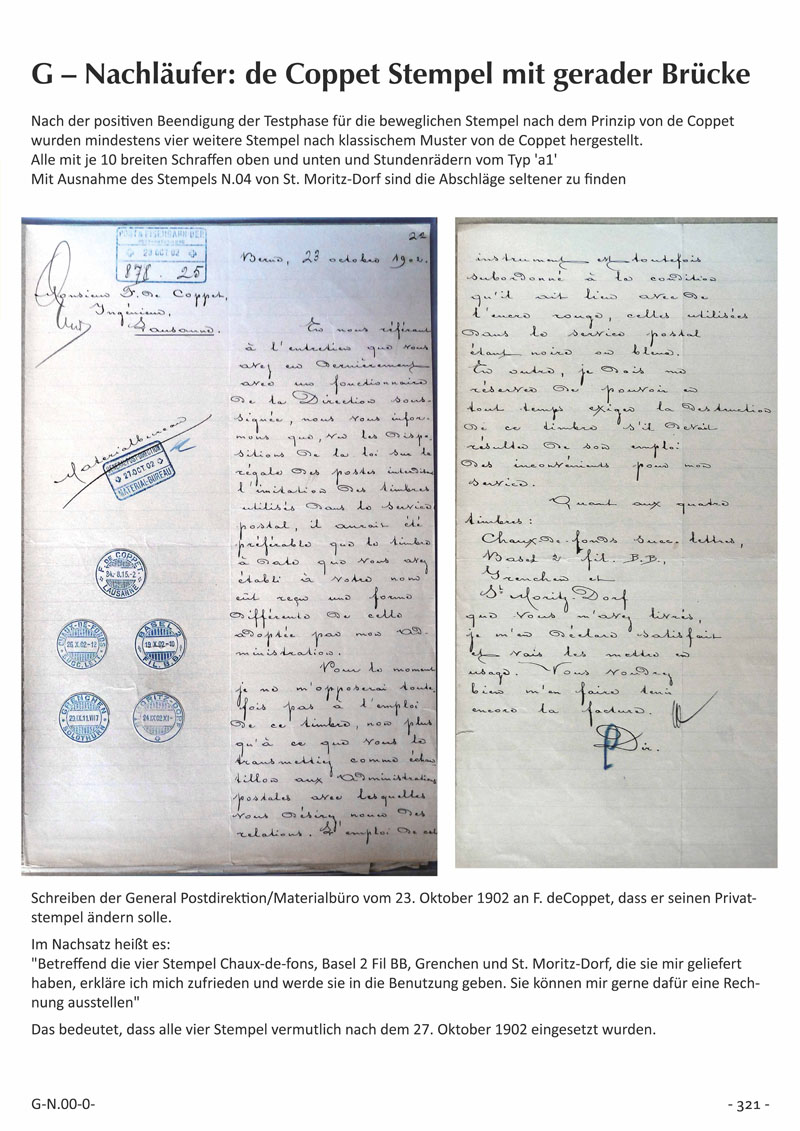 G – Nachläufer: de Coppet Stempel mit gerader Brücke
Nach der positiven Beendigung der Testphase für die beweglichen Stempel nach dem Prinzip von de Coppet
wurden mindestens vier weitere Stempel nach klassischem Muster von de Coppet hergestellt.
Alle mit je 10 breiten Schraffen oben und unten und Stundenrädern vom Typ 'a1'
Mit Ausnahme des Stempels N.04 von St. Moritz-Dorf sind die Abschläge seltener zu finden
23 OCT 02
878 . 25
Monsieur F. de Coppet,
Ingénieur,
Lausanne.
Materialbureau
27.OCT 02
MATERIAL-BUREAU
F. DE COPPET
LAUSANNE
CHAUX-DE-FONDS
SUCC. LET.
BASEL 2
FIL. B.B.
GRENCHEN
SOLOTHURN
Berne, 23 octobre 1902.
En nous référant
à l'entretien que vous
avez eu dernièrement
avec un fonctionnaire
de la Direction sous-
signée, nous vous infor-
mons que, vu les dispo-
sitions de la loi sur la
régale des postes interdite
l'imitation des timbres
utilisés dans le service
postal, il aurait été
préférable que le timbre
à date que vous avez
établi à votre nom
eût reçu une forme
différente de celle
adoptée par mon Ad-
ministration.
Pour le moment
je ne m'opposerai toute-
fois pas à l'emploi
de ce timbre, non plus
qu'à ce que vous le
transmettiez comme échan
tillon aux Administrations
postales avec lesquelles
vous désirez nouer des
relations. L'emploi de cet
instrument est toutefois
subordonné à la condition
qu'il ait lieu avec de
l'encre rouge, celles utilisées
dans le service postal
étant noire ou bleue.
En outre, je dois me
réserver de pouvoir en
tout temps exiger la destruction
de ce timbre s'il devait
résulter de son emploi
des inconvénients pour mon
service.
Quant aux quatre
timbres:
Chaux-de-fonds succ. lettres,
Basel 2 fil. B.B.,
Grenchen et
St Moritz-Dorf
que vous m'avez livrés,
je m'en déclare satisfait
et vais les mettre en
usage. Vous voudrez
bien m'en faire tenir
encore la facture.
Schreiben der General Postdirektion/Materialbüro vom 23. Oktober 1902 an F. deCoppet, dass er seinen Privat-
stempel ändern solle.
Im Nachsatz heißt es:
"Betreffend die vier Stempel Chaux-de-fons, Basel 2 Fil BB, Grenchen und St. Moritz-Dorf, die sie mir geliefert
haben, erkläre ich mich zufrieden und werde sie in die Benutzung geben. Sie können mir gerne dafür eine Rech-
nung ausstellen"
Das bedeutet, dass alle vier Stempel vermutlich nach dem 27. Oktober 1902 eingesetzt wurden.
G-N.00-0-
- 321 -